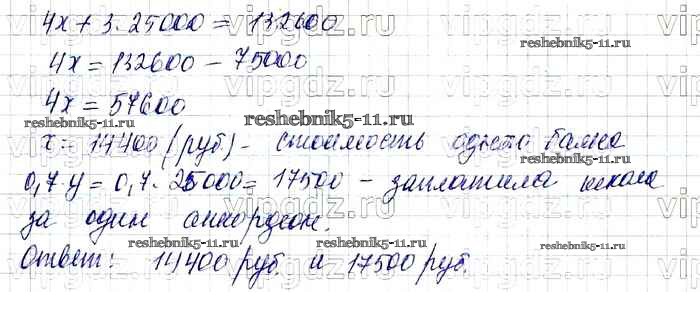 4x + 3·25000 = 132600
4x = 132600 - 75000
4x = 57600
x = 14400 (руб.) - стоимость одного баяна
0,7y = 0,7·25000 = 17500 - заплатила школа
за один аккордеон.
Ответ: 14400 руб. и 17500 руб.
vipgdz.ru
reshebnik5-11.ru
vipgdz.ru
reshebnik5-11.ru
reshebnik5-11.ru
reshebnik5-11.ru
reshebnik5-11.ru
reshebnik5-11.ru
reshebnik5-11.ru